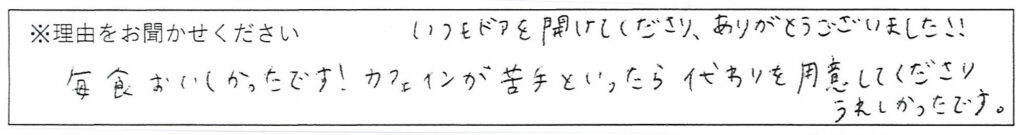 ※理由をお聞かせください
いつもドアを開けてくださり、ありがとうございました!!
毎食おいしかったです！カフェインが苦手といったら代わりを用意してくださり
うれしかったです。